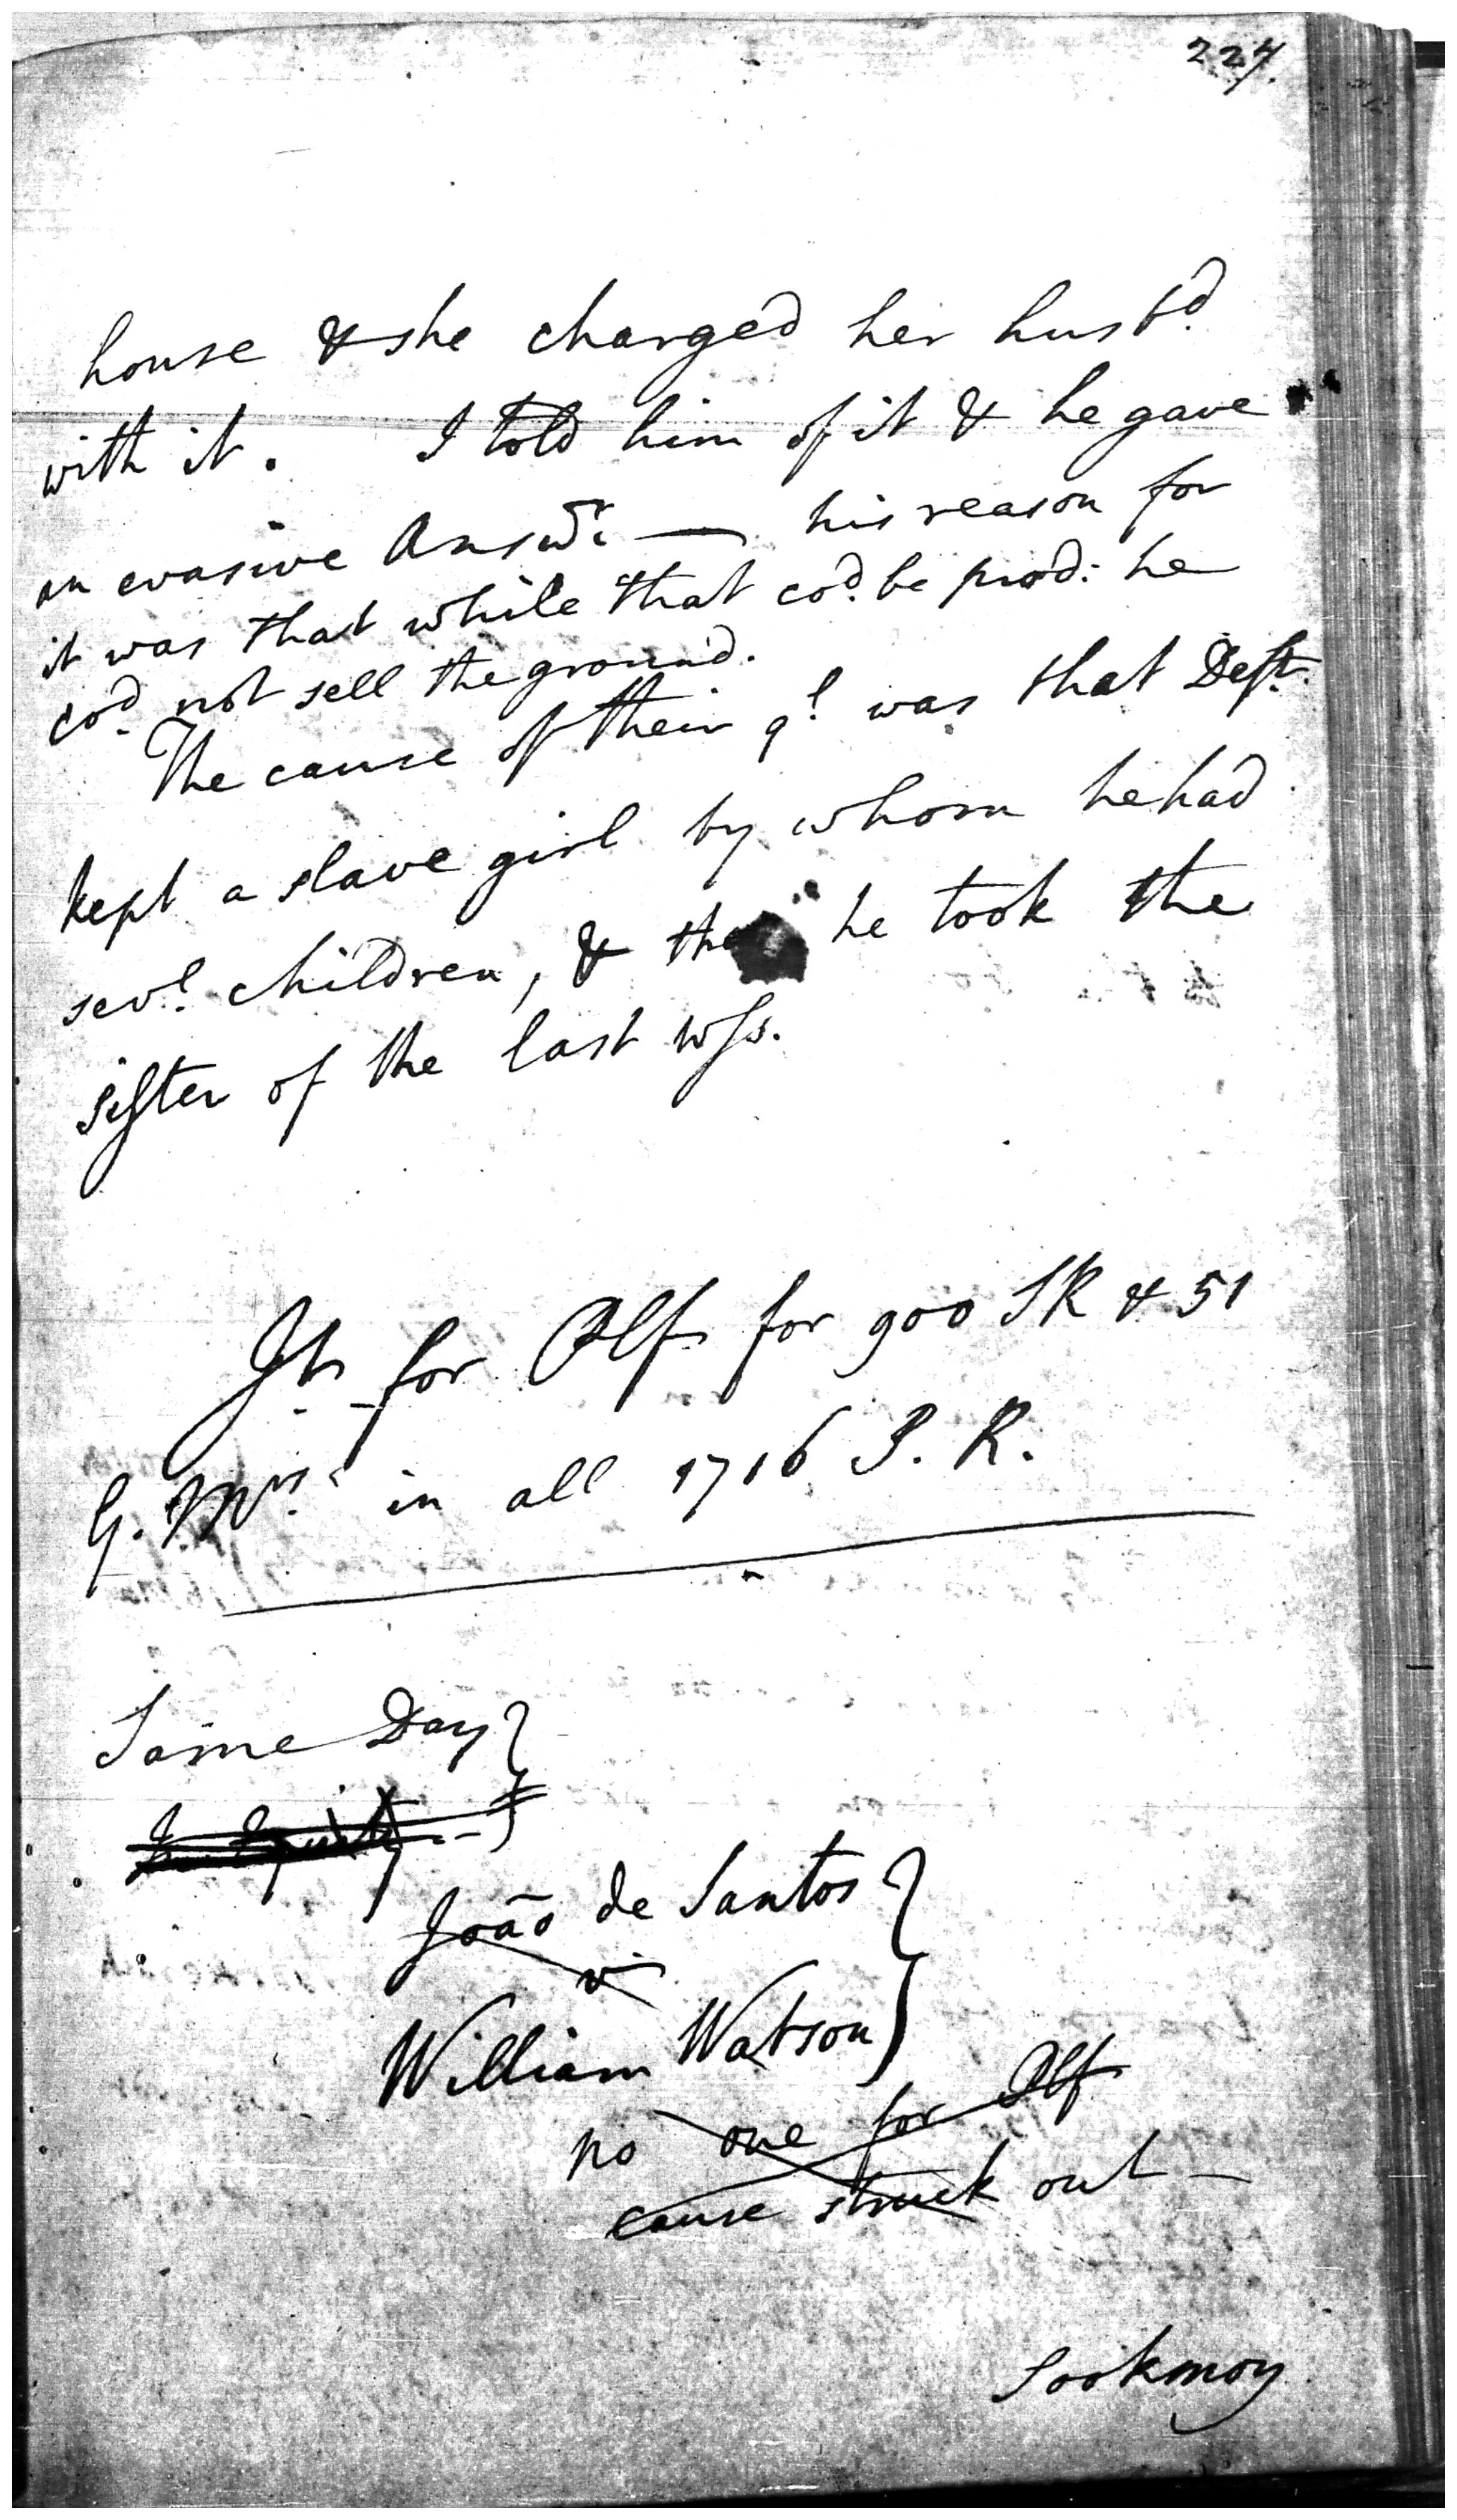 227.
house & she charged her husbd.
with it. I told him of it & he gave
an evasive Answr. — his reason for
it was that while that cod. be prod: he
cod. not sell the ground.
The cause of their ql. was that Deft.
kept a slave girl by whom he had
sevl. children, & he took the
sister of the last wss.
Jt. for Plf for 900 SR & 51
G. Mrs. in all 1716 S. R.
Same Day
In Equity
João de Santos
vs
William Watson
no one for Plf
cause struck out —
Sookmoy